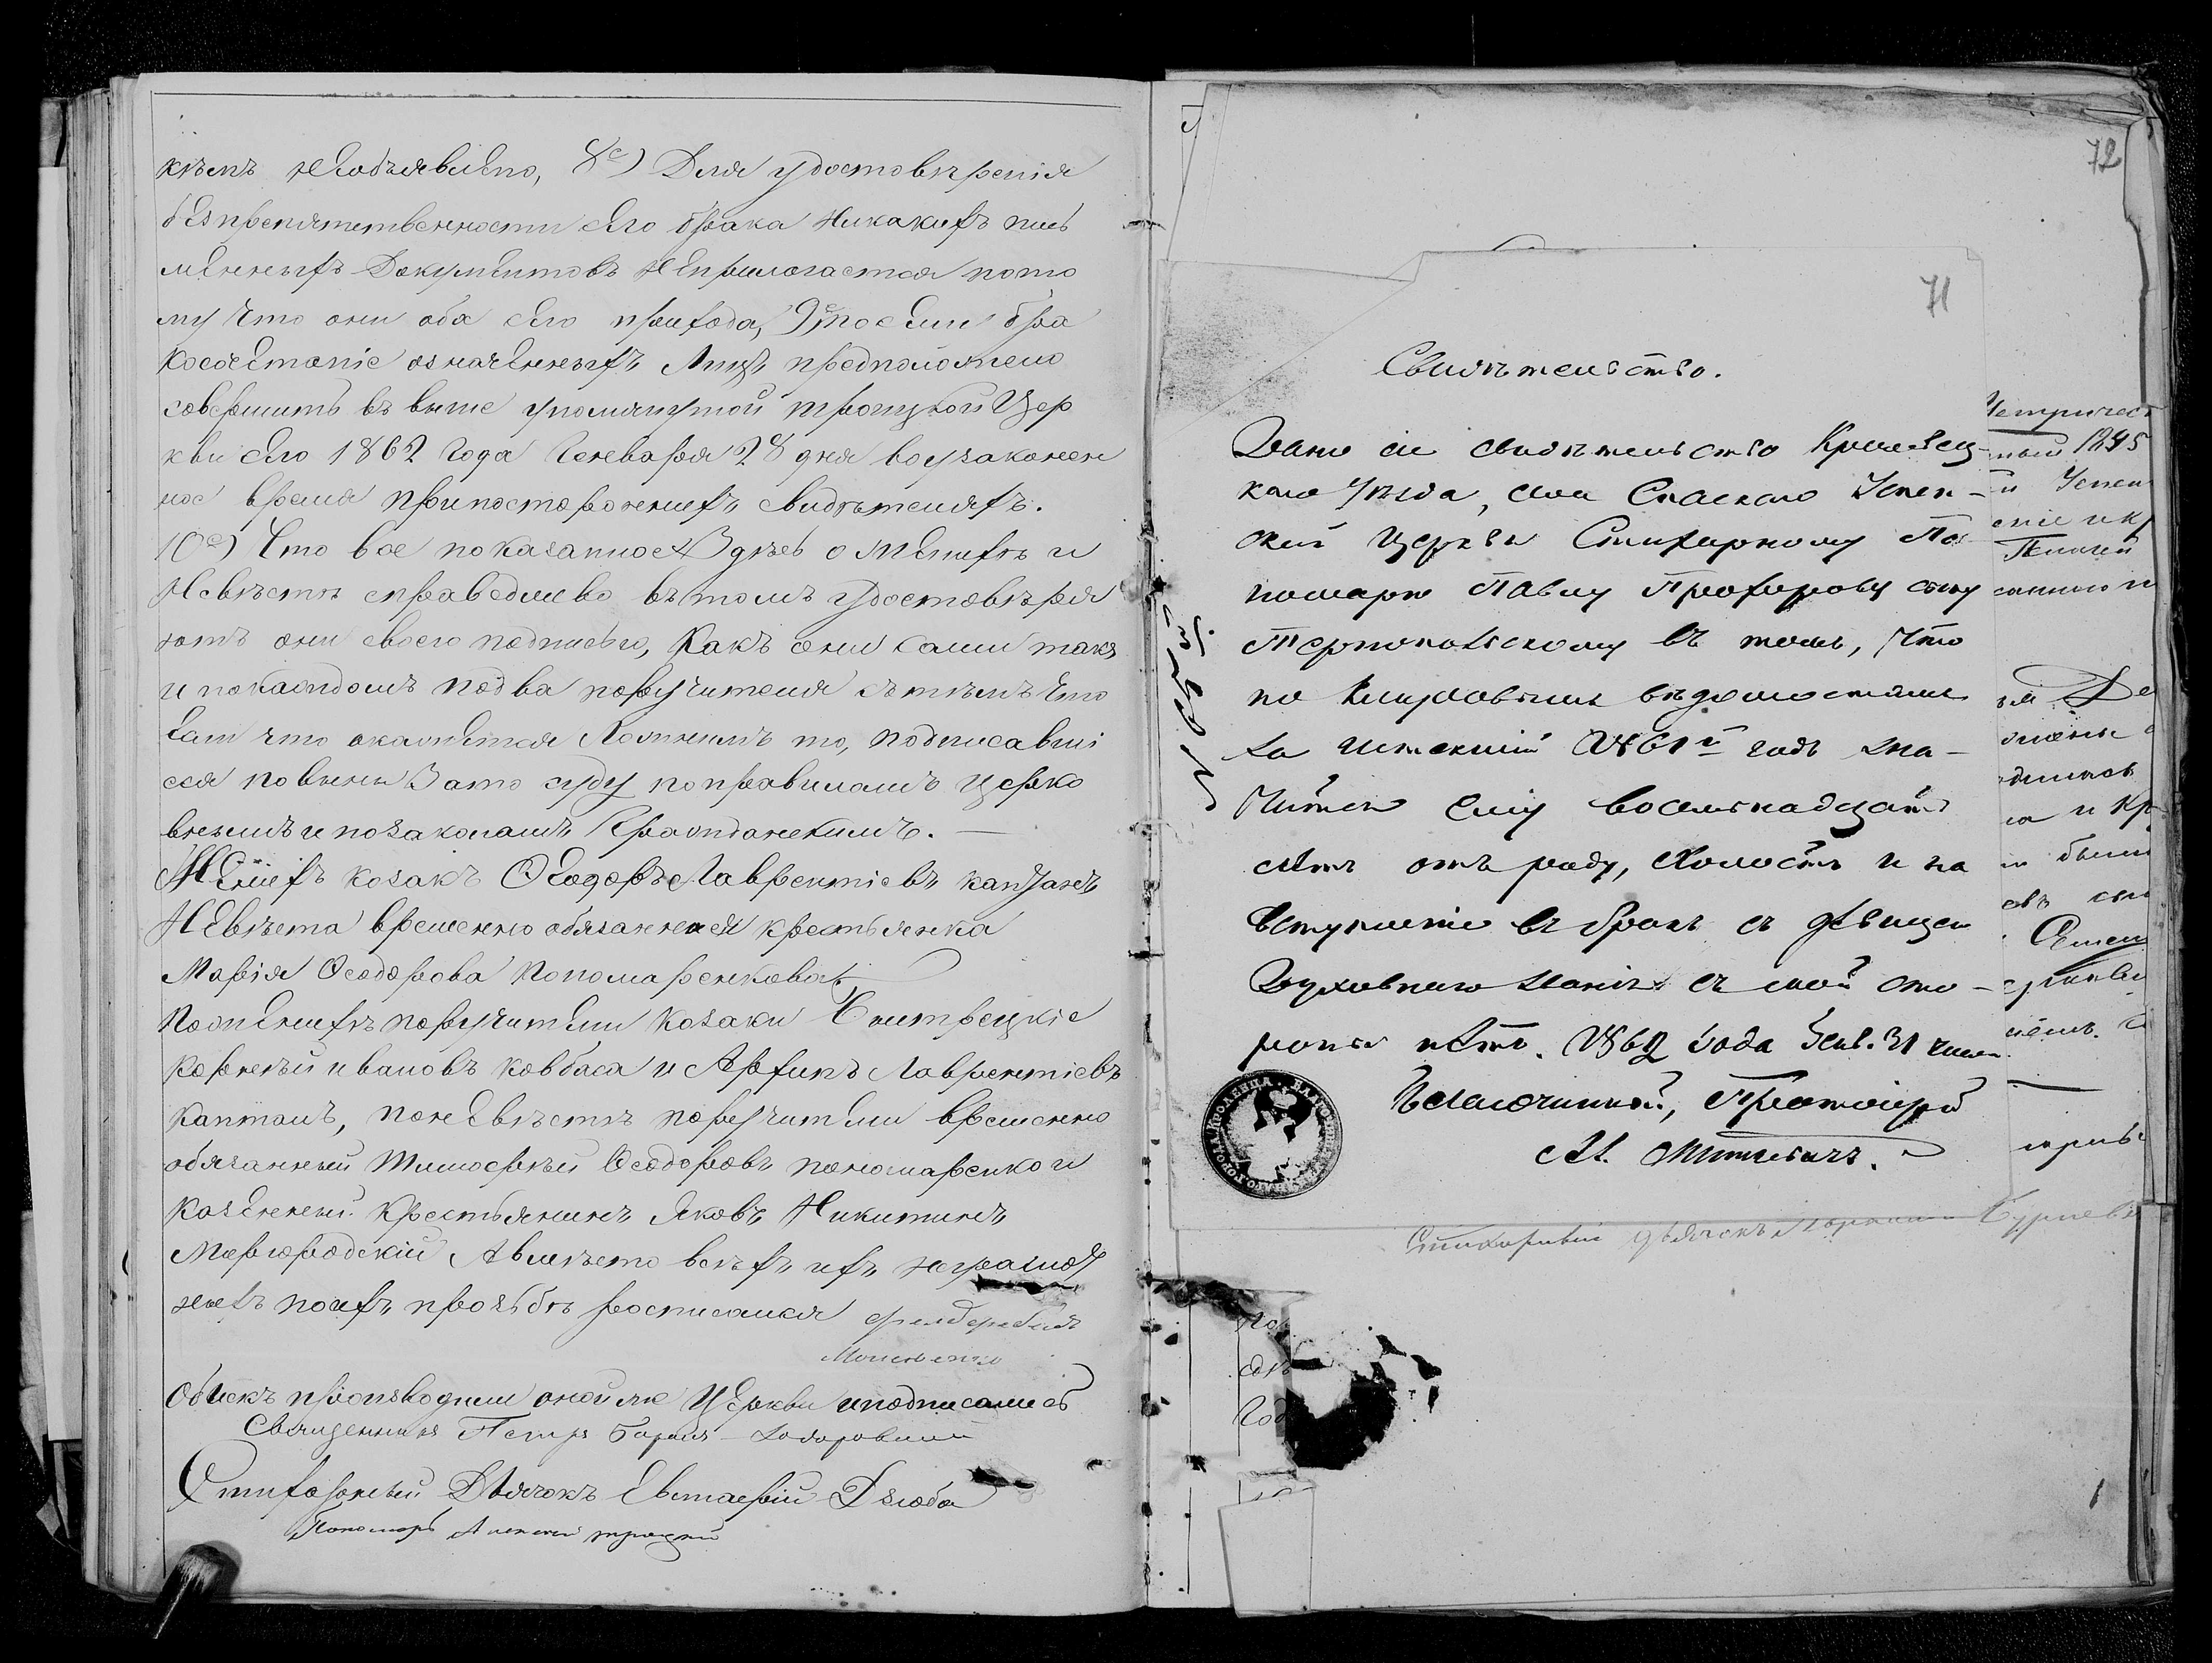 кѣмъ необъявлено, 8е) Для удостовѣренія
безпрепятственности сего брака никакихъ пись
менныхъ документовъ неприлогается пото
му что они оба сего прихода, 9е) посему бра
косочетаніе означенныхъ лицъ предположено
совершить въ выше упомянутой троицкой Цер
кви сего 1862 года Генваря 28 дня воузаконен
ное время припостороннихъ свидѣтеляхъ.
10е) Что все показанное Здѣсь о Женихѣ и
Невѣстѣ справедливо вътомъ удостовѣря
ютъ они своею подписью, какъ они сами такъ
и покаждомъ подва поручителя сътѣмъ что
Если что окажется Ложнымъ то, подписавші
еся повинны Зато суду поправиламъ церко
внымъ и позаконамъ Гражданскимъ. —
Женихъ козакъ Ѳеодоръ Лаврентіевъ каптанъ
Невѣста временно обязанная крестьянка
Марія Ѳеодорова Пономаренкова
Поженихѣ поручители козаки
Корнелій ивановъ ковбаса и Архипъ Лаврентіевъ
каптанъ, поневѣстѣ поручители временно
обязанный Тимоѳей Ѳеодоровъ пономаренко и
козенный крестьянинъ Яковъ Никитинъ
Миргородскій Авмѣсто всѣхъ ихъ неграмот
ныхъ поихъ прозьбѣ росписался
Обыскъ производили оной же Церкви иподписались
Священникъ Петръ
Стихарный Дьячокъ Евстафій Дзюба
Пономарь Алексей троцкій
72
71
Свидѣтельство.
Дано сіе свидѣтельство Кролевец-
каго уѣзда, села Спаскаго Успен-
ской церкви Стихарному По
номарю Павлу Прохорову сыну
Тернопольскому въ томъ, что
по клировымъ вѣдомостямъ
за истекшій 1861й годъ зна-
чится ему восемнадцать
лѣтъ отъ роду, холостъ и на
вступленіе въ бракъ съ дѣвицею
Духовнаго званія съ моей сто-
роны нѣтъ. 1862 года Генв. 31 числа
Благочинный, Протоіерей
Ал. Миткевичъ.
Стихарный дьячокъ